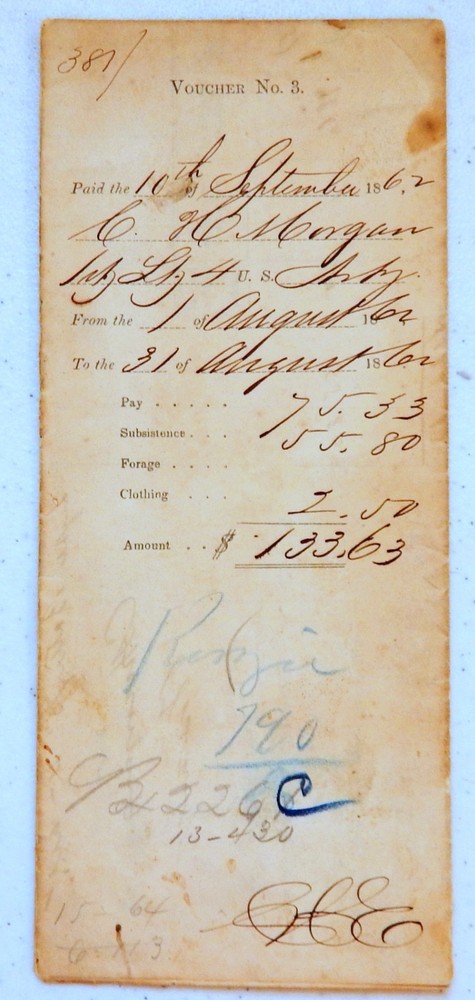 381/
VOUCHER No. 3.
Paid the 10th of September 1862
C. H. Morgan
1st Lt 4 U. S. Arty.
From the 1 of August 1862
To the 31 of August 1862
Pay . . . . . 75.33
Subsistence . . . 55.80
Forage . . . .
Clothing . . . 2.50
Amount . . $ 133.63
790
C
13-430
15-64